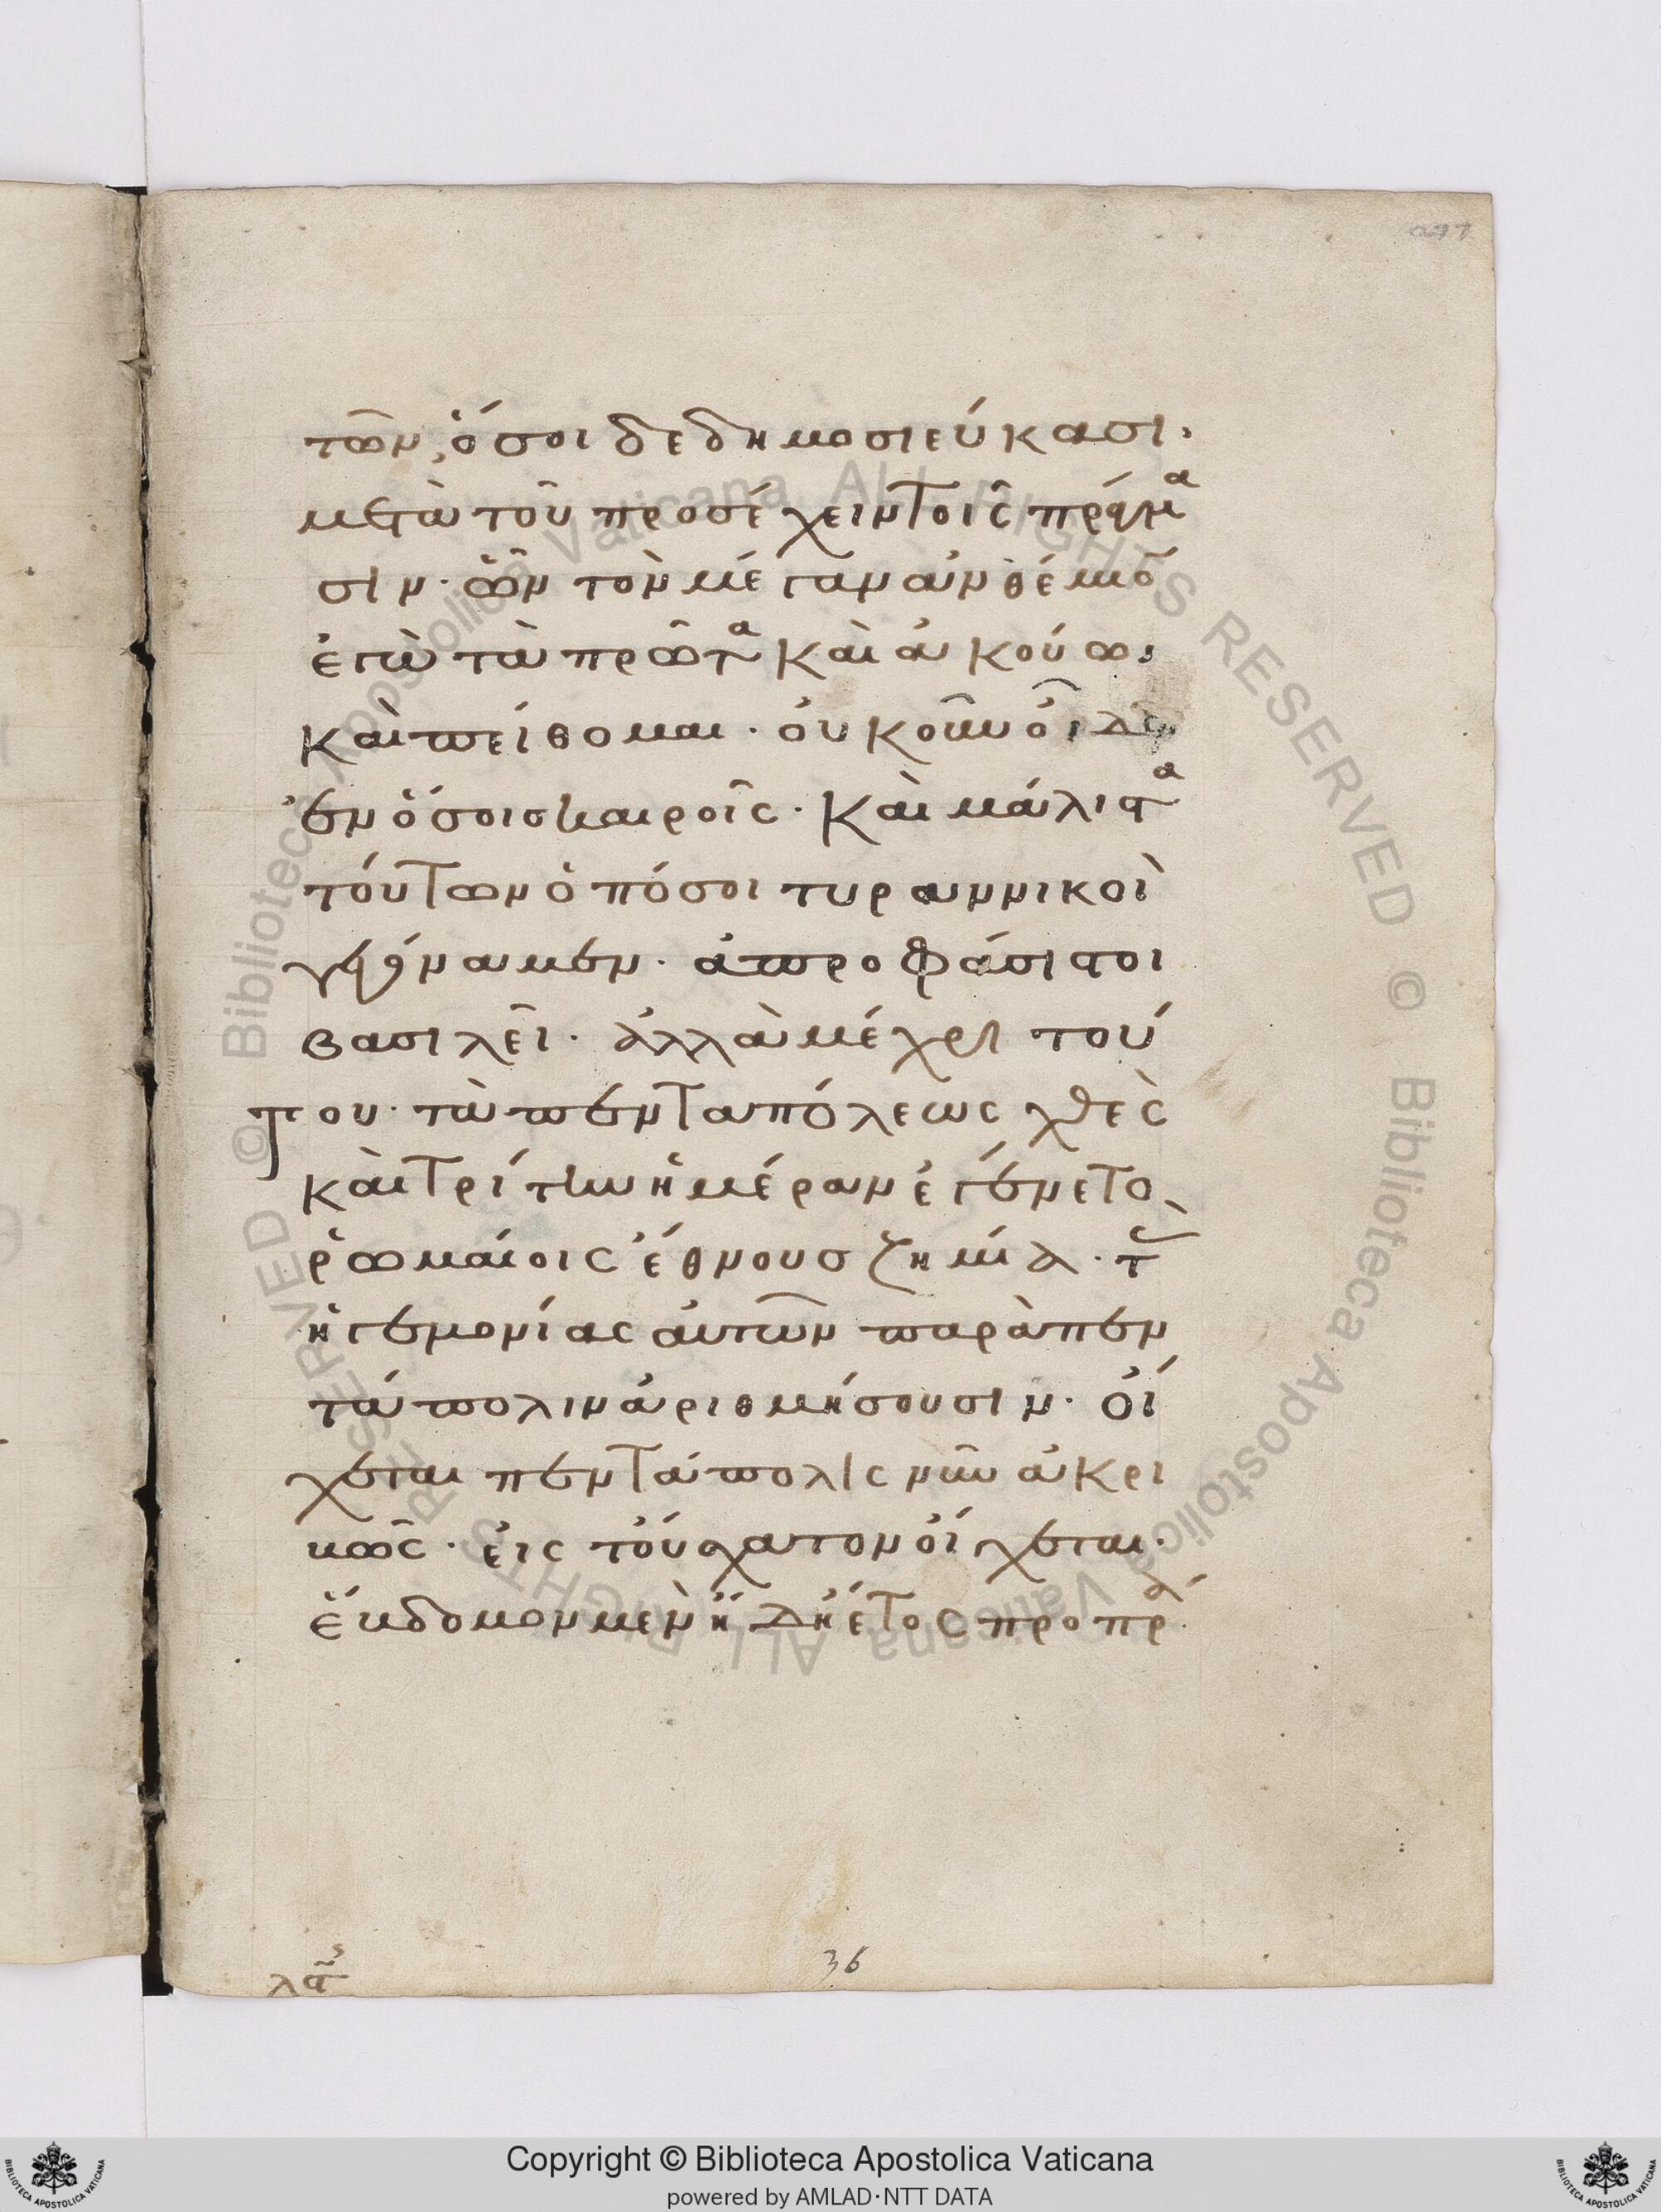 τῶν, ὅσοι δεδημοσιεύκασι.
μετὰ τοῦ προσέχειν τοῖς πράγμα
σιν. ὧν τὸν μέγαν ἀνθέμιο
ἐγὼ τὰ πρῶτα καὶ ἀκούω.
καὶ πείθομαι. οὐκοῦν
ἐν ὅσοις καιροῖς. καὶ μάλιστα
τούτων ὁπόσοι τυραννικοὶ
γεγόνασιν. ἀπροφάσιστοι
βασιλεῖ. ἀλλὰ μέχρι τού
του. τὰ πενταπόλεως χθὲς
καὶ τρίτην ἡμέραν ἐγένετο
ῥωμαίοις ἔθνους ζημία. τ
ἡγεμονίας αὐτῶν παρὰ πεν
τάπολιν ἀριθμήσουσιν. οἴ
χεται πεντάπολις νῦν ἀκρι
βῶς. εἰς τοὔσχατον οἴχεται.
ἕβδομον μὲν ἤδη ἔτος προπρά
36
Copyright © Biblioteca Apostolica Vaticana
powered by AMLAD·NTT DATA